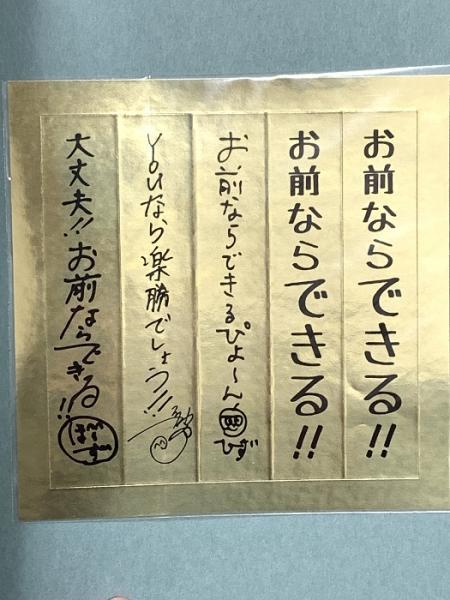 お前ならできる!!
お前ならできる!!
お前ならできるぴよ〜ん
ひず
youなら楽勝でしょう!!
大丈夫!!お前ならできる!!